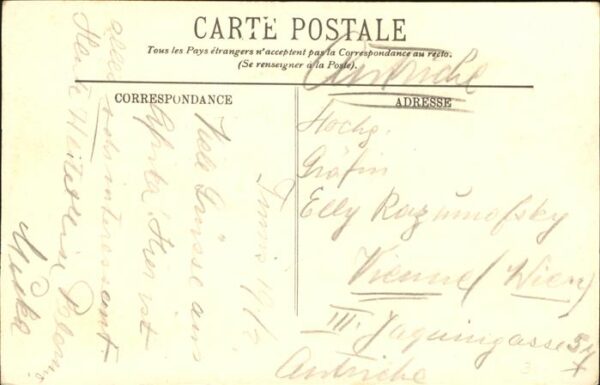 CARTE POSTALE
Tous les Pays étrangers n'acceptent pas la Correspondance au recto.
(Se renseigner à la Poste).
Autriche
CORRESPONDANCE
ADRESSE
Tunis 19/
Viele Grüsse aus
hier ist
alles sehr interessant
Heute
Hochg.
Gräfin
Elly Razumofsky
Vienne (Wien)
III. Jaquingasse 57
Autriche